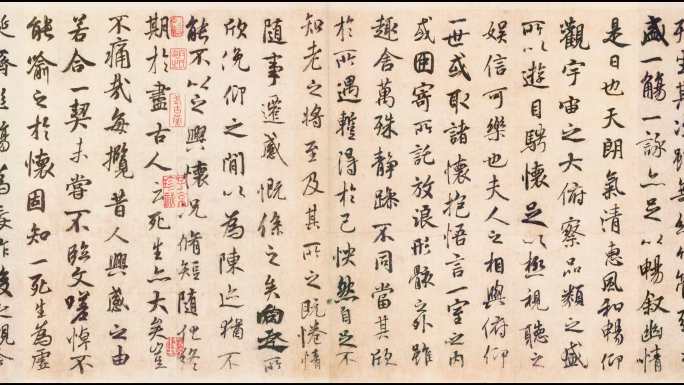 盛一觴一詠亦足以暢叙幽情
是日也天朗氣清惠風和暢仰
觀宇宙之大俯察品類之盛
所以遊目騁懷足以極視聽之
娛信可樂也夫人之相與俯仰
一世或取諸懷抱悟言一室之內
或因寄所託放浪形骸之外雖
趣舍萬殊靜躁不同當其欣
於所遇蹔得於己怏然自足不
知老之將至及其所之既惓情
隨事遷感慨係之矣向之所
欣俛仰之間以為陳迹猶不
能不以之興懷況脩短隨化終
期於盡古人云死生亦大矣豈
不痛哉每攬昔人興感之由
若合一契未嘗不臨文嗟悼不
能喻之於懷固知一死生為虛